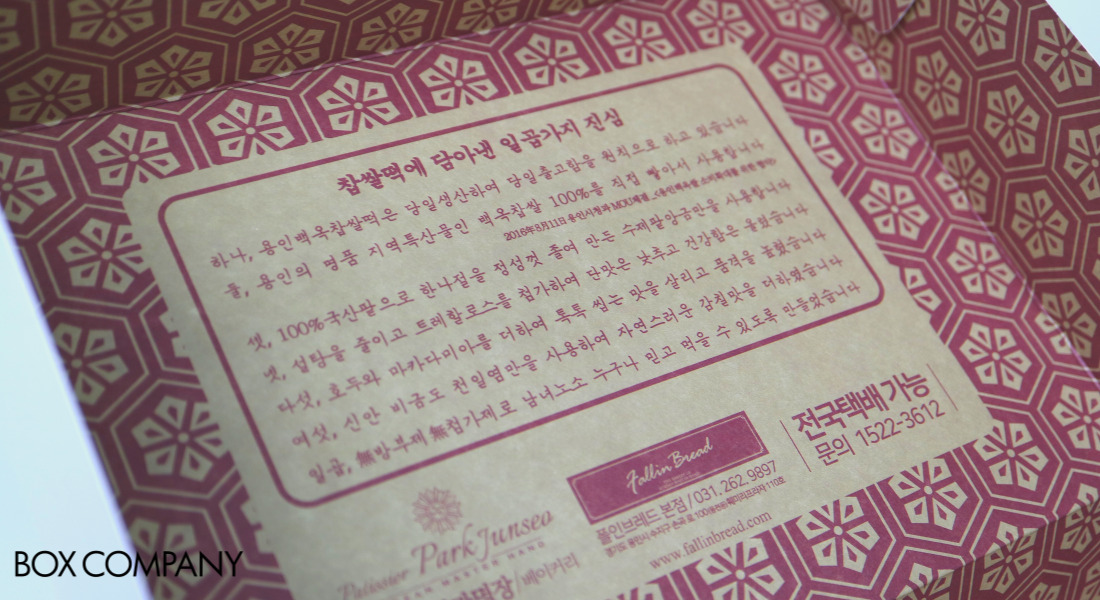 찹쌀떡에 담아낸 일곱가지 진심
하나, 용인백옥찹쌀떡은 당일생산하여 당일출고함을 원칙으로 하고 있습니다
둘, 용인의 명품 지역특산물인 백옥찹쌀 100%를 직접 빻아서 사용합니다
2016년8월11일 용인시청과 MOU체결
셋, 100%국산팥으로 한나절을 정성껏 졸여 만든 수제팥앙금만을 사용합니다
넷, 설탕을 줄이고 트레할로스를 첨가하여 단맛은 낮추고 건강함은 올렸습니다
다섯, 호두와 마카다미아를 더하여 톡톡 씹는 맛을 살리고 품격을 높혔습니다
여섯, 신안 비금도 천일염만을 사용하여 자연스러운 감칠맛을 더하였습니다
일곱, 無방부제 無첨가제로 남녀노소 누구나 믿고 먹을 수 있도록 만들었습니다
Park Junseo
Patissier
MASTER HAND
명장 베이커리
Fallin Bread
폴인브레드 본점 / 031.262.9897
경기도 용인시 수지구 손곡로 100
www.fallinbread.com
전국택배 가능
문의 1522-3612
BOX COMPANY